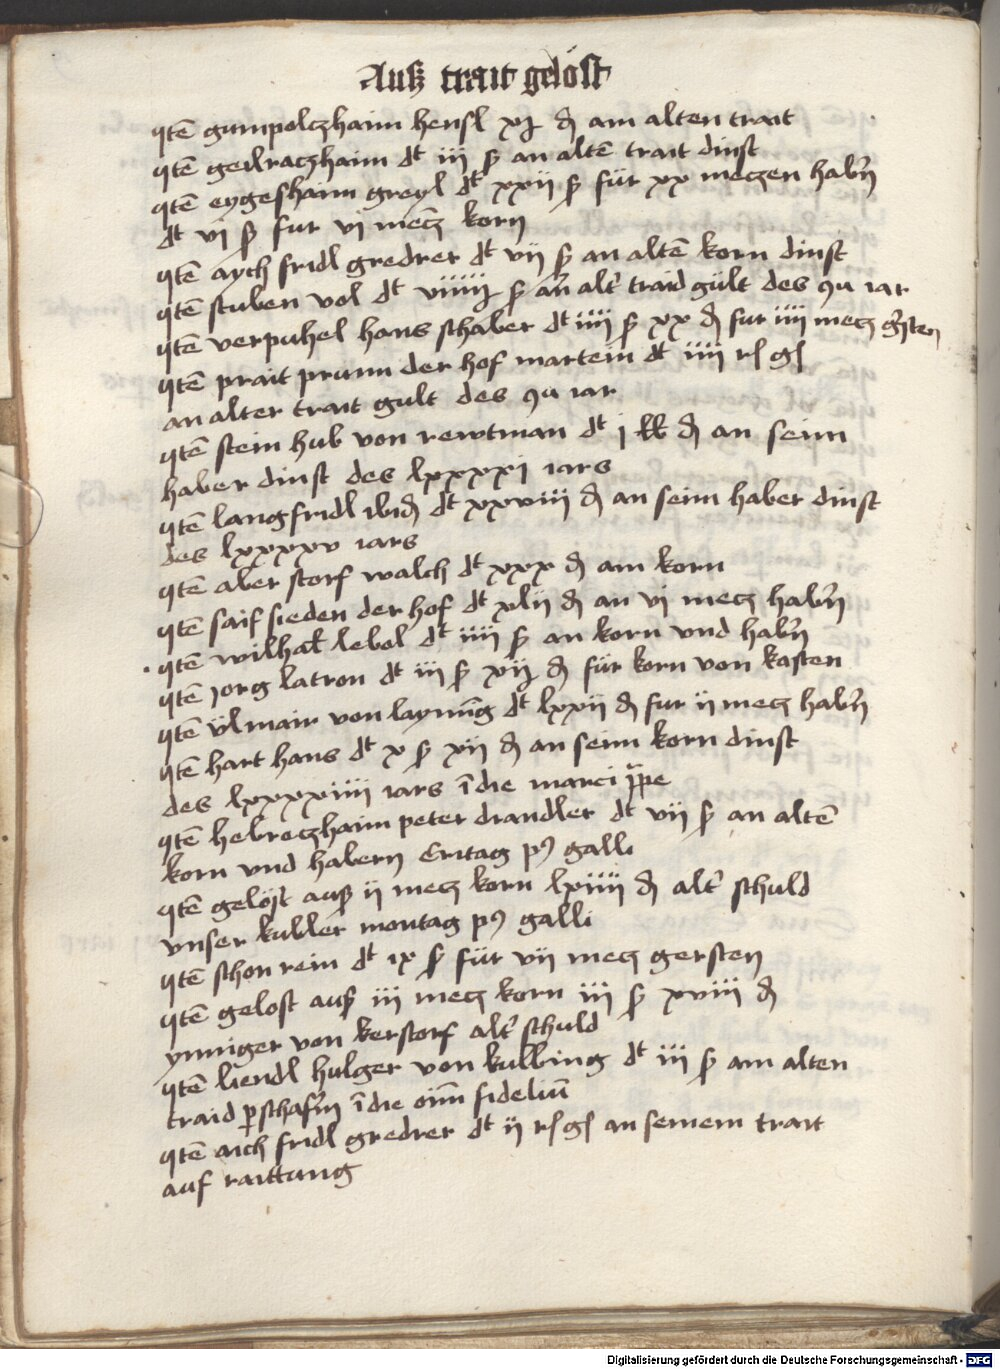 Ausz trait gelöst
Itē gumpolczhaim hensl xj d am alten trait
Itē geilraczhaim dt iij ß an altē trait dinst
Itē eygeshaim greyl dt xxij ß für xx meczen habn̄
dt vj ß fur vj mecz korn
Itē aych fridl gredrer dt vij ß an altē korn dinst
Itē stuben vol dt ß an alt traid gült des 94 iar
Itē verpuhel hans schaber dt iiij ß xx d fur iiij mecz gersten
Itē prait prunn der hof martein dt iiij
an alter trait gult des 94 iar
Itē stein hub von rewtman dt j lb d an seim
haber dinst des lxxxxj iars
Itē lang fridl ibid dt xxviij d an seim haber dinst
des lxxxxv iars
Itē aber storf walch dt xxx d am korn
Itē saif sieden der hof dt xlij d an vj mecz habn̄
Itē wilhal lebol dt iiij ß an korn vnd habn̄
Itē jorg latron dt iij ß xij d für korn von kasten
Itē ülmair von laymīg dt lxxij d fur ij mecz habn̄
Itē hart hans dt x ß xij d an seim korn dinst
des lxxxxiiij iars ī die marci
Itē hebreczhaim peter drandler dt vij ß an altē
korn vnd habern Eritag p9 galli
Itē gelöst aus ij mecz korn lxiiij d alt schuld
vnser kubler montag p9 galli
Itē schonrein dt ix ß für vij mecz gersten
Itē gelost aus iij mecz korn iij ß xviij d
ynniger von kerstorf alt schuld
Itē liendl hulger von kulbing dt iij ß am alten
traid ī die oīm fideliū
Itē aich fridl gredrer dt ij an seinem trait
auf raittung
Digitalisierung gefördert durch die Deutsche Forschungsgemeinschaft - DFG